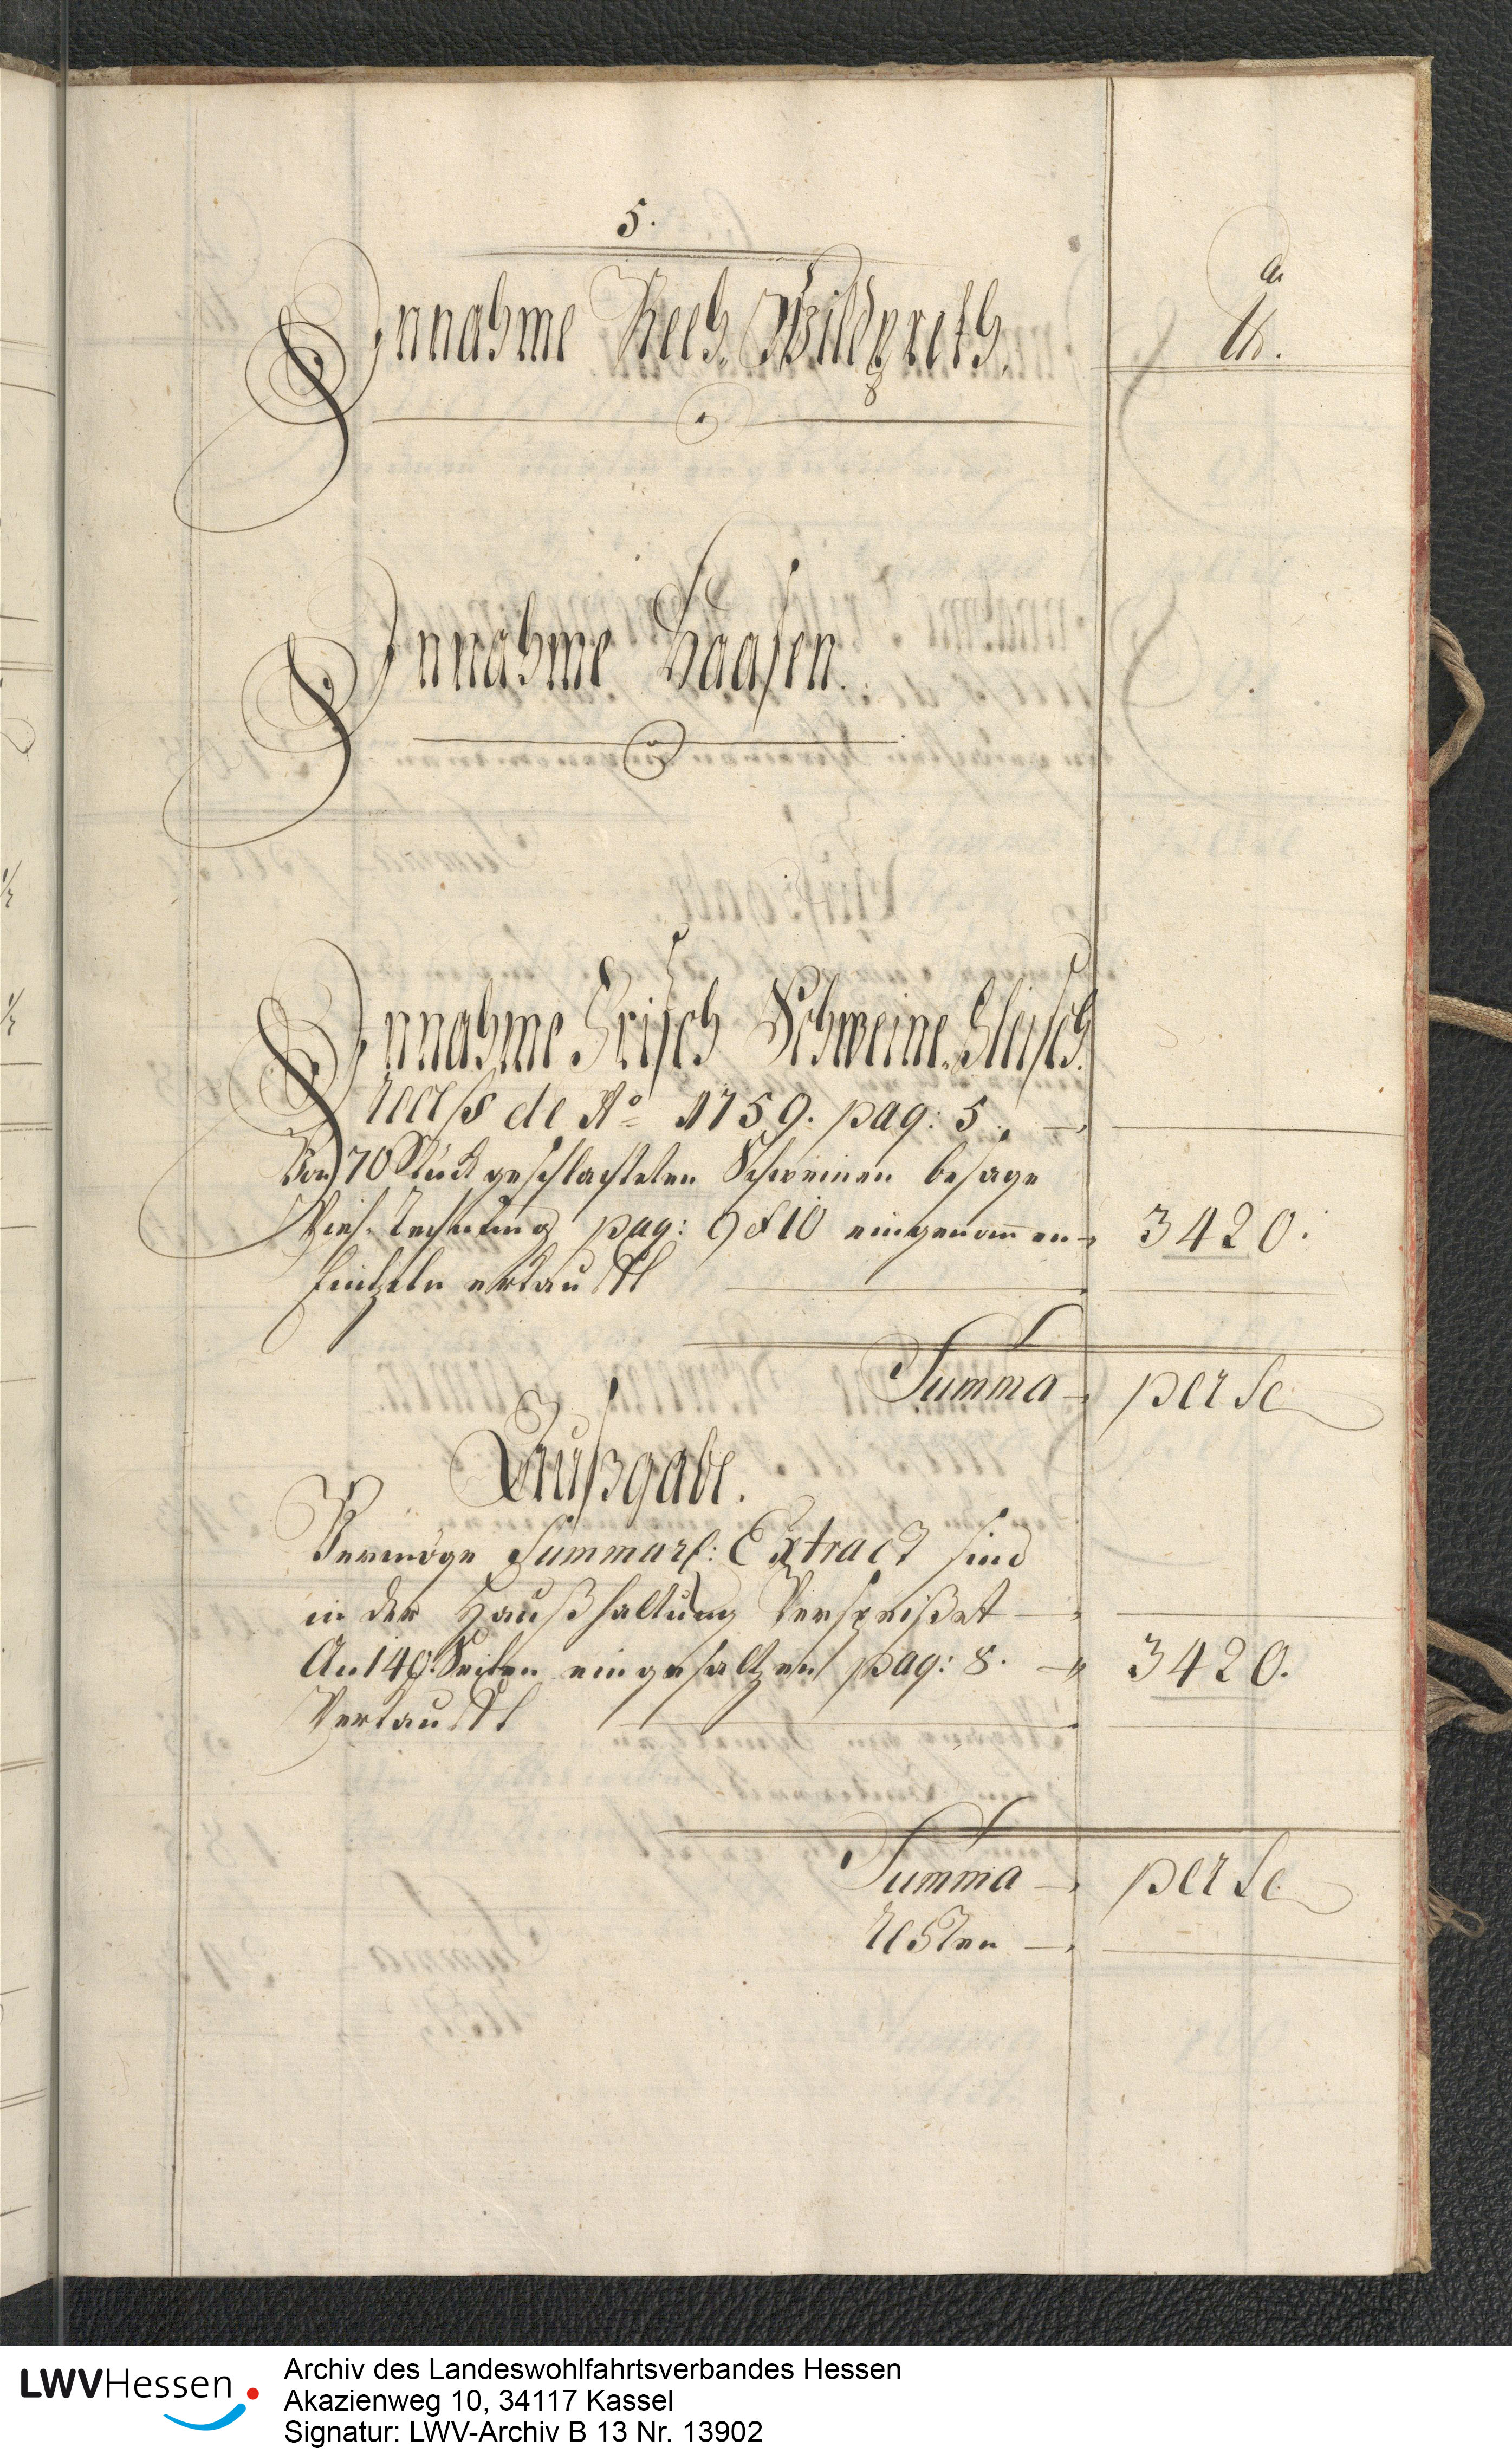 5.
a
lb.
Innahme Reeh. Wildpreth.
Innahme Haasen.
Innahme Frisch Schweine. Fleisch.
Recess de Ao 1759. pag: 5.
Von 70 Stück geschlachteten Schweinen besage
Vieh. Rechnung pag: 9 & 10 eingenommen 3420.
Eintzeln erkaufft
Summa per se
Außgabe.
Vermöge Summari: Extract sind
in der Haußhaltung Verspeißet
An 140. Seiten eingesaltzen pag: 8. 3420.
Verkaufft
Summa per se
Resten
1/2
1/2
LWVHessen
Archiv des Landeswohlfahrtsverbandes Hessen
Akazienweg 10, 34117 Kassel
Signatur: LWV-Archiv B 13 Nr. 13902